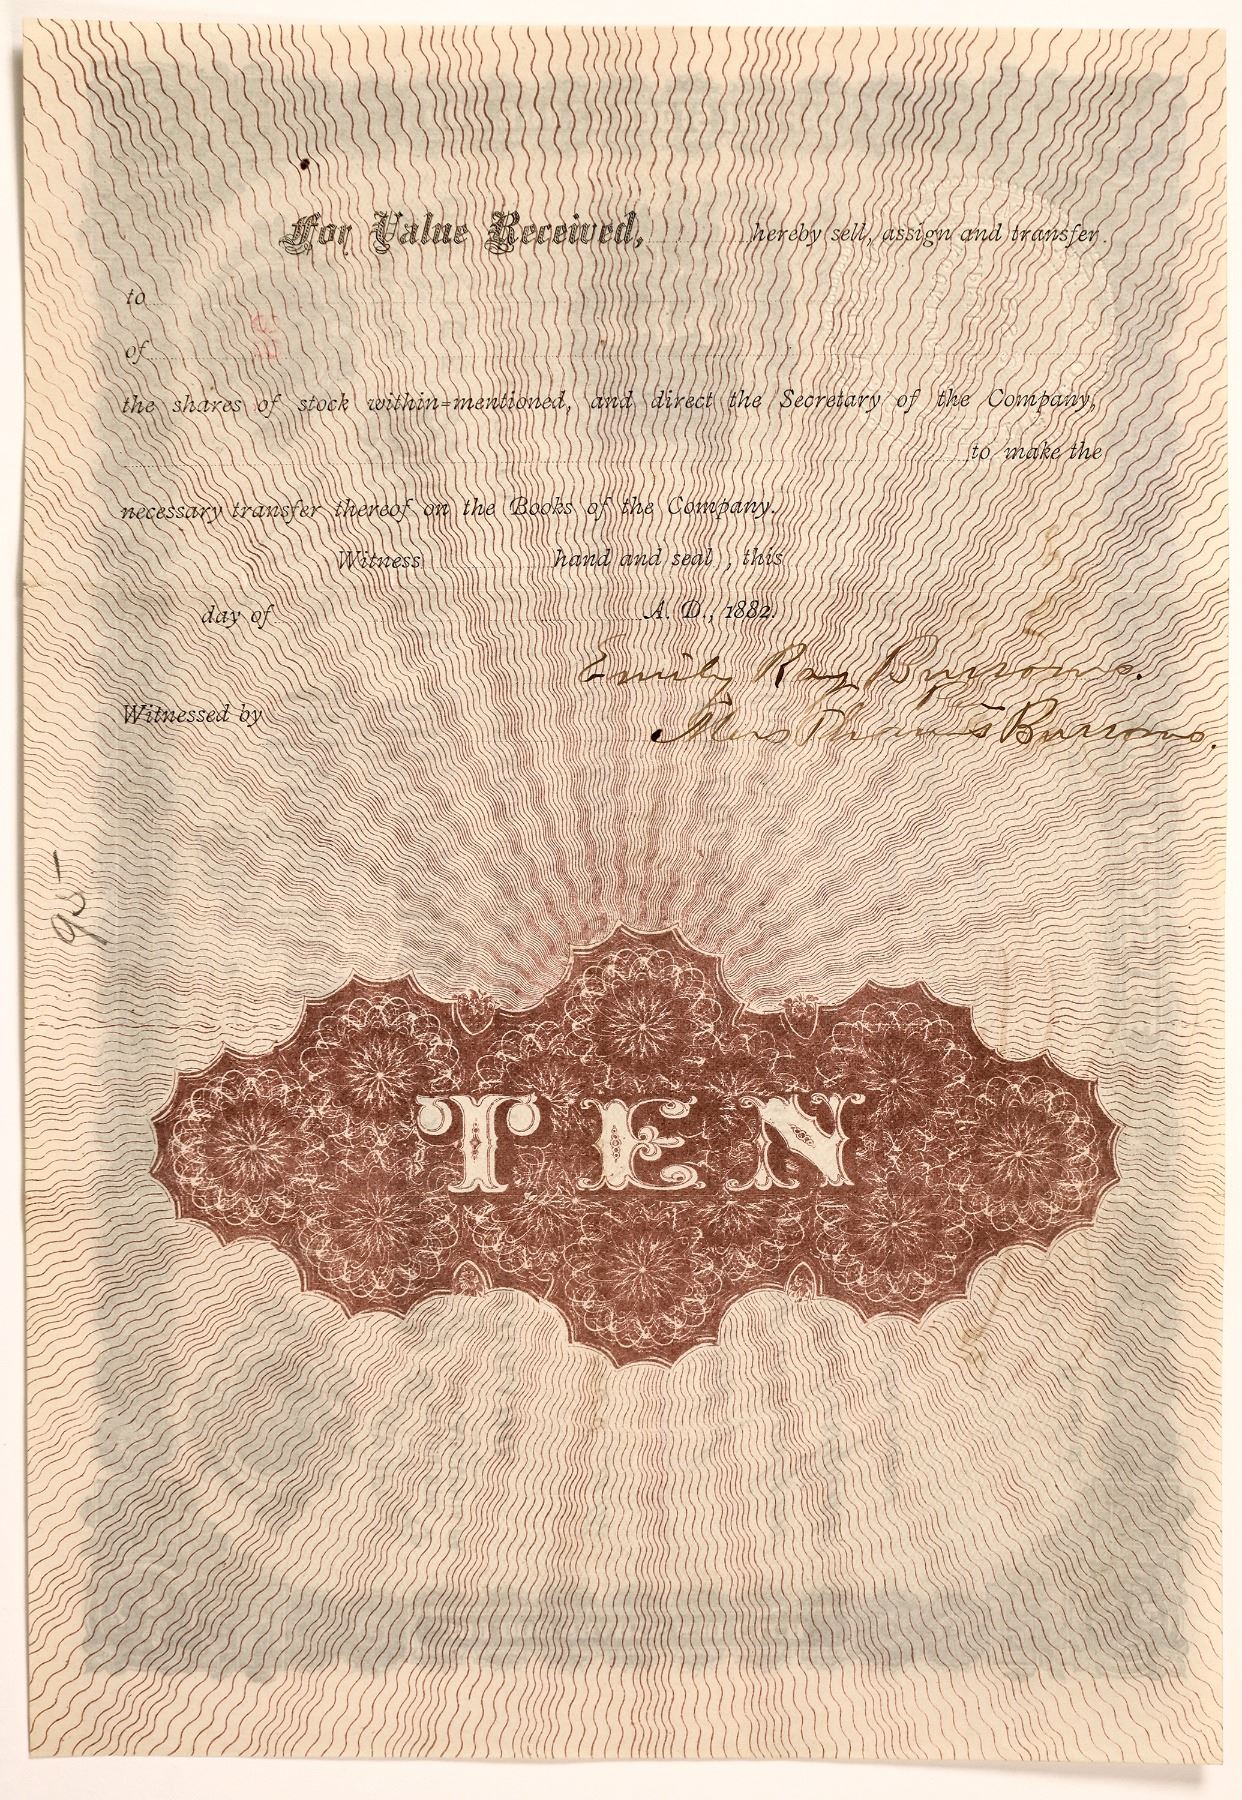 For Value Received, hereby sell, assign and transfer
to
of
the shares of stock within=mentioned, and direct the Secretary of the Company,
to make the
necessary transfer thereof on the Books of the Company.
Witness hand and seal , this
day of A. D., 1882.
Emily Ray Burrows.
Witnessed by
Mrs Thomas Burrows.
TEN